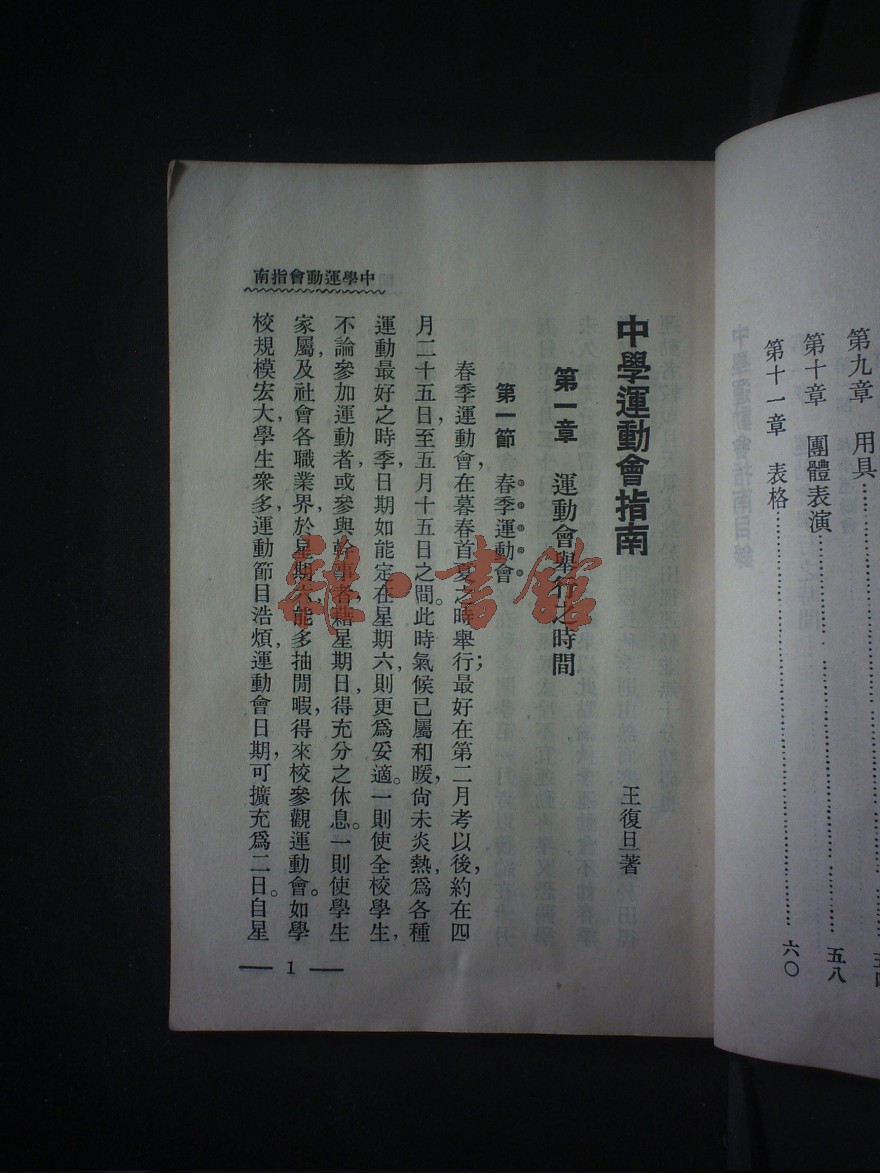 第九章　用具
第十章　團體表演 五八
第十一章　表格 六〇
中學運動會指南
王復旦著
第一章　運動會舉行之時間
第一節　春季運動會
春季運動會，在暮春首夏之時舉行；最好在第二月考以後，約在四
月二十五日，至五月十五日之間。此時氣候已屬和暖，尙未炎熱，爲各種
運動最好之時季，日期如能定在星期六，則更爲妥適。一則使全校學生，
不論參加運動者，或參與幹事者，藉星期日，得充分之休息。一則使學生
家屬，及社會各職業界，於星期六，能多抽閒暇，得來校參觀運動會。如學
校規模宏大，學生衆多，運動節目浩煩，運動會日期，可擴充爲二日。自星
中學運動會指南
1
雜·書館